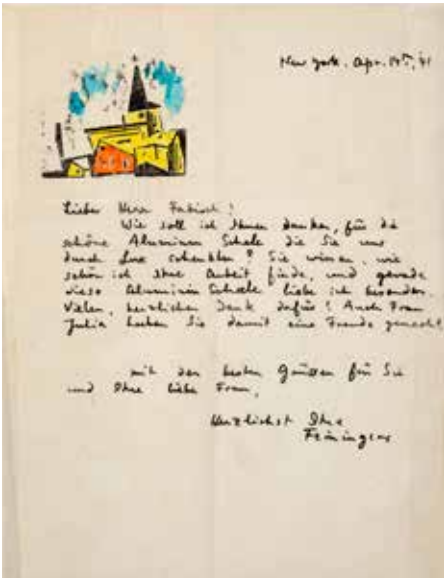 New York. Apr. 14th, 41
Lieber Herr Fabisch!
Wie soll ich Ihnen danken, für die
schöne Aluminium Schale die Sie uns
durch schenkten? Sie wissen, wie
schön ich Ihre Arbeit finde, und gerade
diese Aluminium Schale liebe ich besonders.
Vielen, herzlichen Dank dafür! Auch Frau
Julia haben Sie damit eine Freude gemacht!
mit den besten Grüssen für Sie
und Ihre liebe Frau,
Herzlichst Ihre
Feiningers